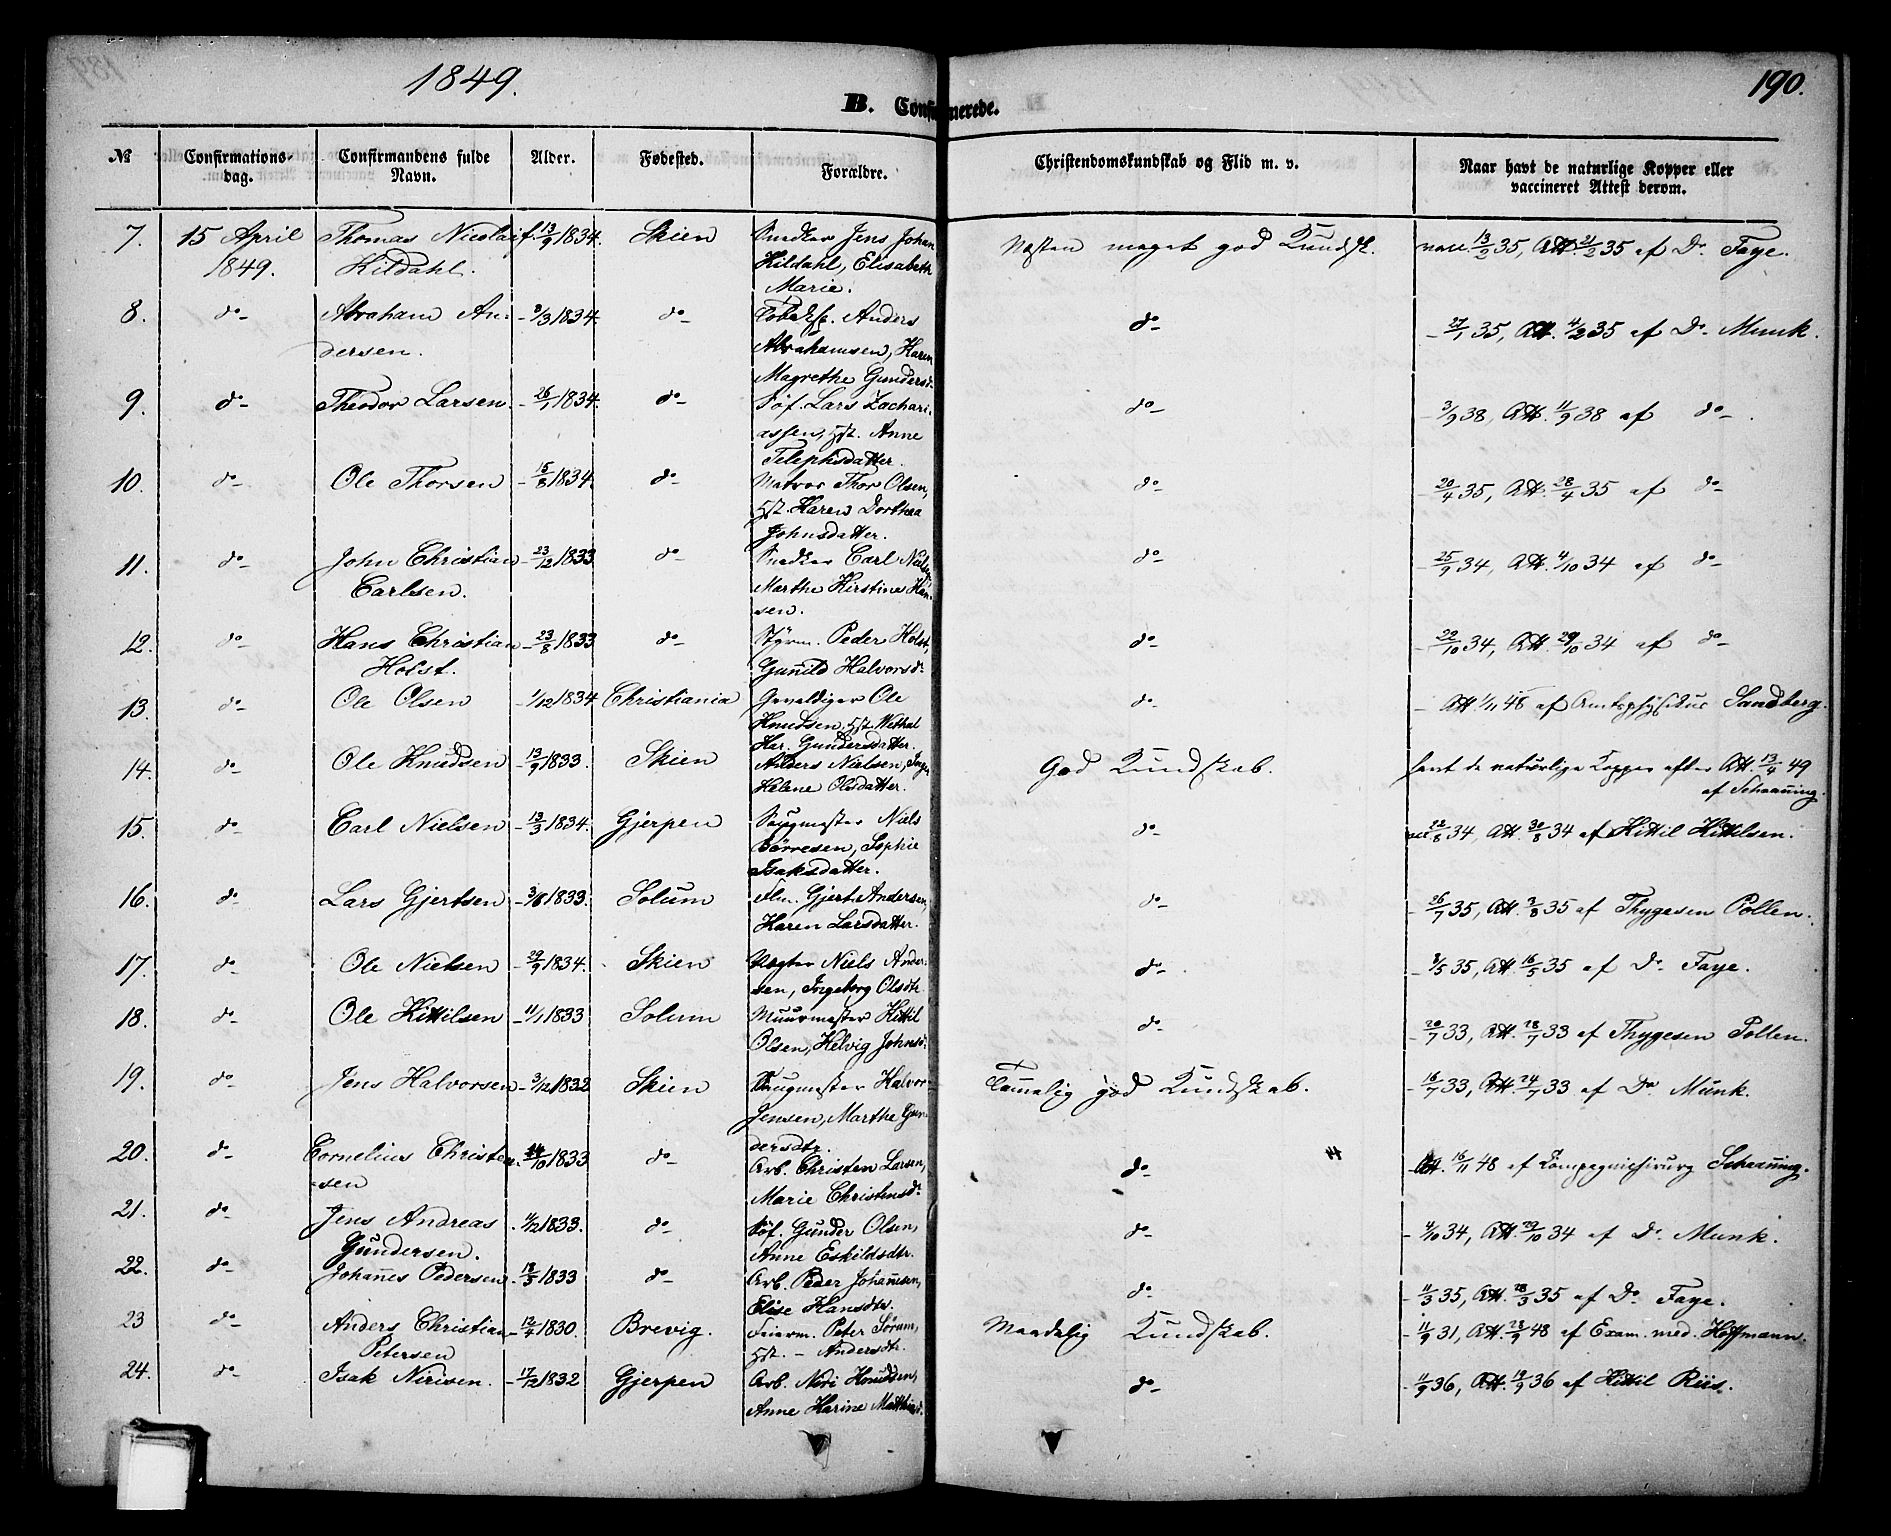 1849.
190.
B. Confirmerede.
№ Confirmations-dag. Confirmandens fulde Navn. Alder. Fødested. Forældre. Christendomskundskab og Flid m. v. Naar havt de naturlige Kopper eller vaccineret Attest derom.
7. 15 April Thomas Nicolai f. 13/9 1834. Skien Snedker Jens Johan Næsten meget god Kundsk. vacc. 13/2 35, Att. 21/2 35 af Dr. Faye.
1849. Kildahl. Kildahl, Elisabeth
Marie.
8. do Abraham An- - 3/3 1834. do Anders do - 27/1 35, Att. 4/2 35 af Dr. Munk.
dersen. Abrahamsen, Karen
Magrethe Gundersd.
9. do Theodor Larsen. - 26/1 1834. do Søf. Lars Zachari- do - 3/9 38, Att. 11/9 38 af do.
assen, Hst. Anne
Telephsdatter.
10. do Ole Thorsen - 15/8 1834. do Matros Thor Olsen, do - 20/4 35, Att. 28/4 35 af do
Hst. Karen Dorthea
Johnsdatter.
11. do John Christian - 23/12 1833 do Snedker Carl Nielsen, do - 25/9 34, Att. 4/10 34 af do
Carlsen. Marthe Kirstine Han-
sen.
12. do Hans Christian - 23/8 1833 do Styrm. Peder Holst, do - 22/10 34, Att. 29/10 34 af do
Holst. Gunild Halvorsd.
13. do Ole Olsen - 1/12 1834 Christiania Gevaldiger Ole do - Att. 1/11 48 af Amtsphysikus Sandberg.
Knudsen, Hst.
Kar. Gundersdatter.
14. do Ole Knudsen - 13/9 1833. Skien Anders Nielsen, Inge God Kundskab. havt de naturlige Kopper efter Att. 13/4 49
Helene Olsdatter. af Schaaning.
15. do Carl Nielsen - 13/3 1834. Gjerpen Saugmester Niels do vac 22/8 34, Att. 30/8 34 af Kittil Kittilsen.
Børresen, Sophie
Isaksdatter.
16. do Lars Gjertsen - 3/8 1833. Solum Gjert Andersen, do - 26/7 35, Att. 3/8 35 af Thygesen Pollen.
Karen Larsdatter.
17. do Ole Nielsen - 29/9 1834. Skien Vægter Niels Ander- do - 8/5 35, Att. 16/5 35 af Dr. Faye.
sen, Ingeborg Olsdtr.
18. do Ole Kittilsen - 11/1 1833 Solum Muurmester Kittil do - 20/7 33, Att. 28/7 33 af Thygesen Pollen.
Olsen, Helvig Johnsd.
19. do Jens Halvorsen - 3/12 1832 Skien Saugmester Halvor Temmelig god Kundskab. - 16/7 33, Att. 24/7 33 af Dr. Munk.
Jensen, Marthe Gun-
dersdtr.
20. do Cornelius Christen- 24/10 1833 do Arb. Christen Larsen, do Att. 16/11 48 af Compagnichirurg Schaaning.
sen Marie Christensd.
21. do Jens Andreas - 4/12 1833. do Søf. Gunder Olsen, do - 4/10 34, Att. 29/10 34 af Dr. Munk.
Gundersen. Anne Eskildsdtr.
22. do Johannes Pedersen - 18/5 1833 do Arb. Peder Johannesen, do - 11/3 35, Att. 28/3 35 af Dr. Faye.
Elise Hansdtr.
23 do Anders Christian - 12/4 1830. Brevig. Feierm. Peter Sørum, Maadelig Kundskab. - 11/9 31, Att. 28/9 48 af Exam. med. Hoffmann.
Petersen Hst. - Andersdtr.
24. do Isak Nirisen. - 17/12 1832 Gjerpen Arb. Niri Knudsen, do - 11/9 36, Att. 19/9 36 af Kittil Riis.
Anne Karine Mathiasd.